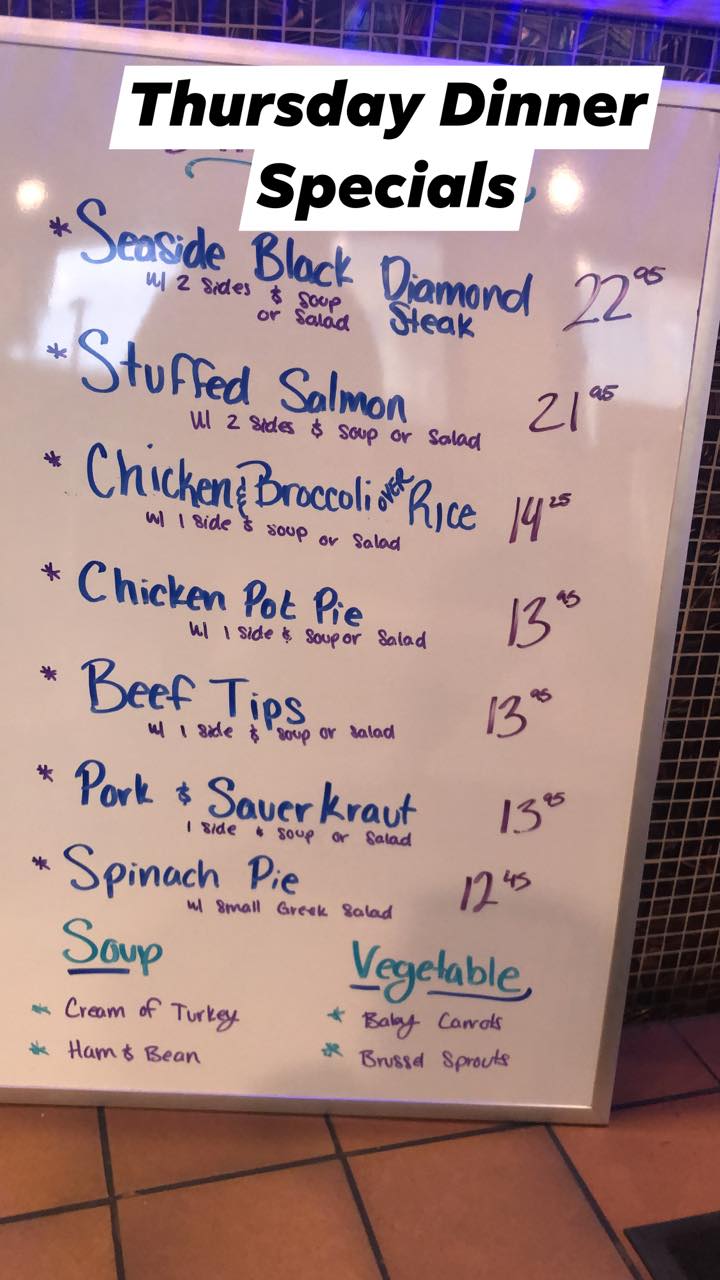 Thursday Dinner
Specials
* Seaside Black Diamond Steak 22 95
w/ 2 Sides & Soup
or Salad
* Stuffed Salmon 21 95
w/ 2 Sides & Soup or Salad
* Chicken & Broccoli OVER Rice 14 25
w/ 1 Side & soup or Salad
* Chicken Pot Pie 13 95
w/ 1 Side & Soup or Salad
* Beef Tips 13 95
w/ 1 Side & soup or Salad
* Pork & Sauerkraut 13 95
1 Side & Soup or Salad
* Spinach Pie 12 45
w/ Small Greek Salad
Soup
* Cream of Turkey
* Ham & Bean
Vegetable
* Baby Carrots
* Brussel Sprouts